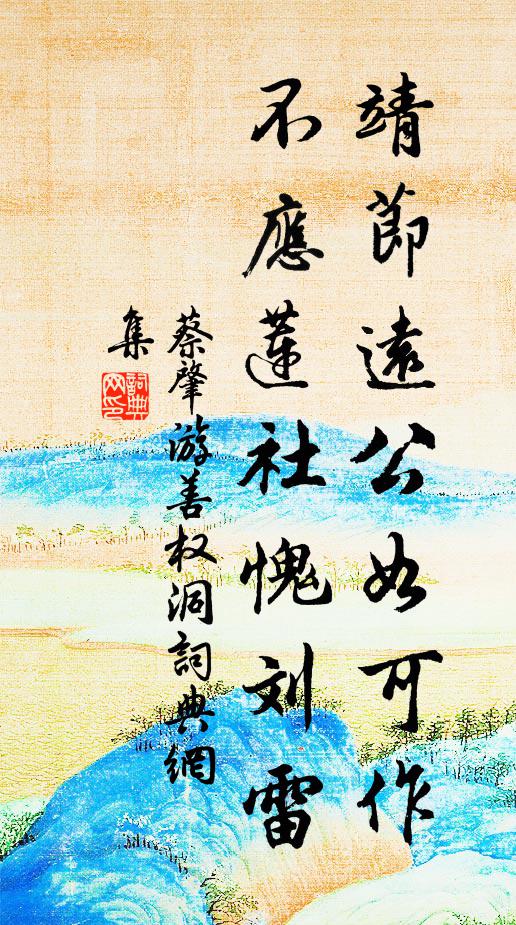 靖節遠公如可作
不應蓮社愧刘雷
蔡肇游善权洞詞典網
集
詞典
网印